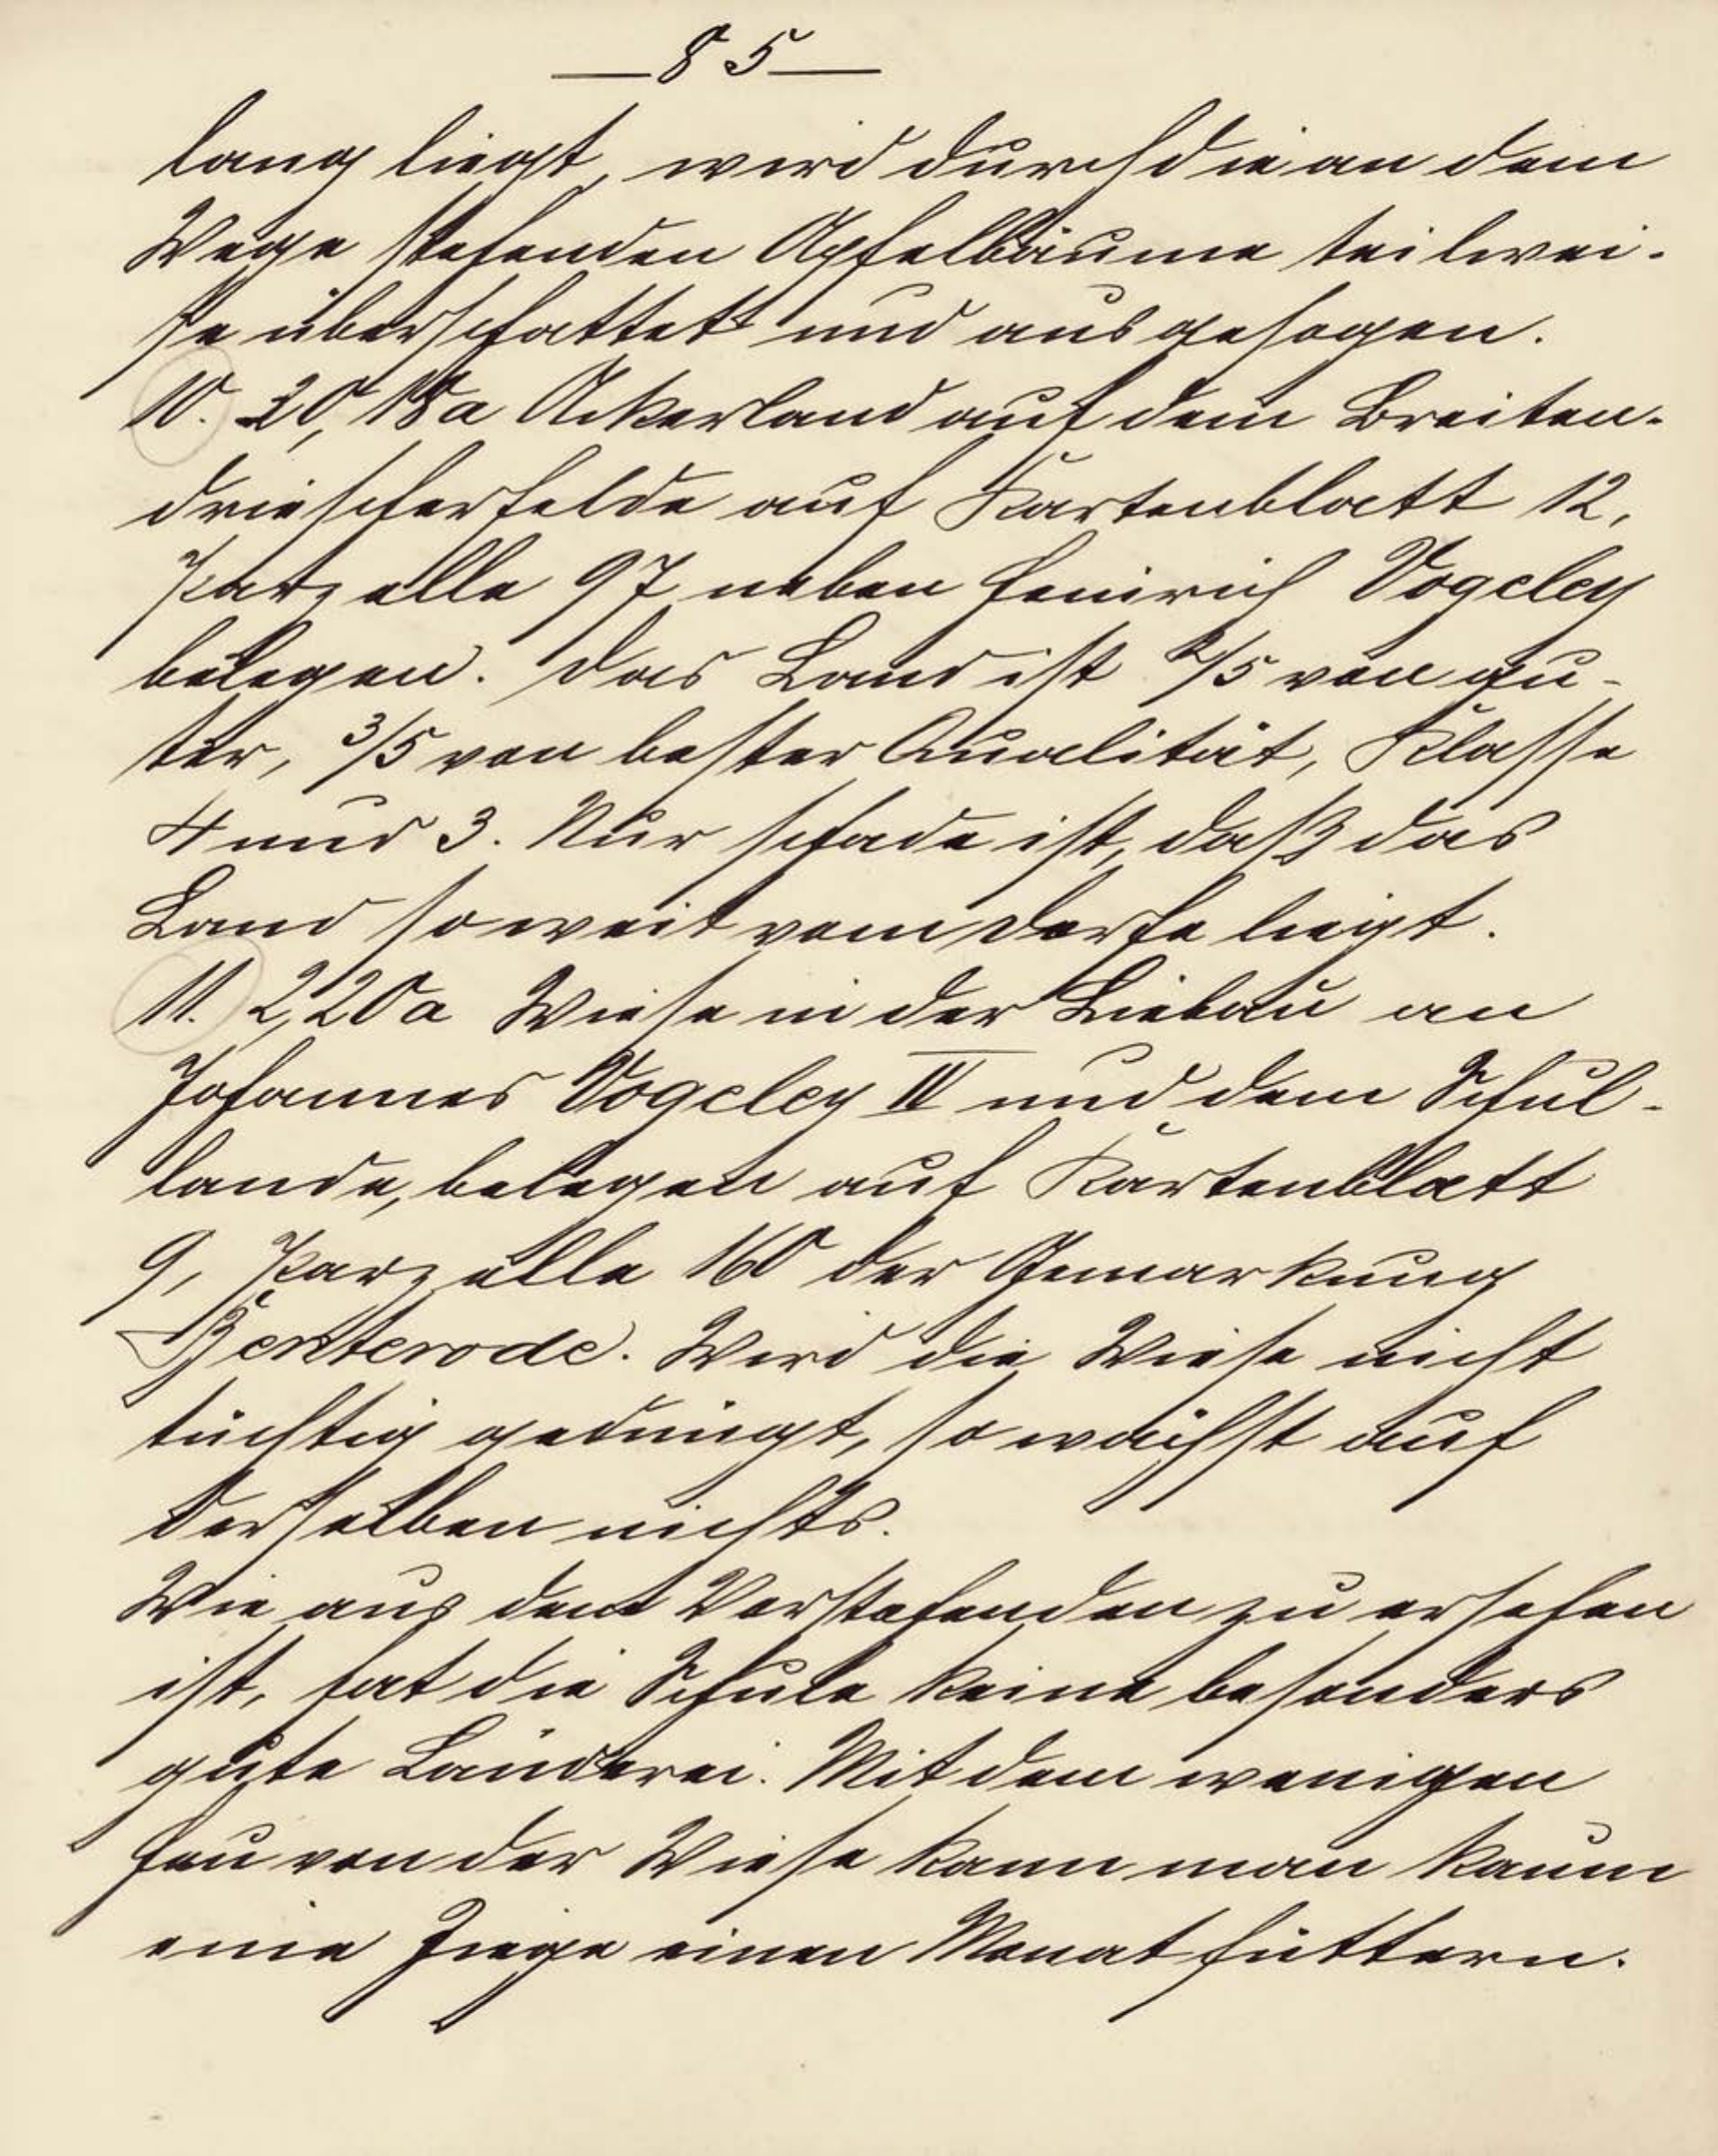 — 85 —
lang liegt, wird durch die an dem
Wege stehenden Apfelbäume teilwei-
se überschattet und ausgesogen.
10. 20,18 a Ackerland auf dem Breiten-
driescherfelde auf Kartenblatt 12,
Parzelle 97 neben Heinrich Vogeley
belegen. Das Land ist 2/5 von gu-
ter, 3/5 von bester Qualität, Klasse
4 und 3. Nur schade ist, daß das
Land so weit vom Dorfe liegt.
11. 2,20 a Wiese in der Liebau an
Johannes Vogeley IV und dem Schul-
lande, belegen auf Kartenblatt
9, Parzelle 160 der Gemarkung
Benterode. Wird die Wiese nicht
tüchtig gedüngt, so wächst auf
derselben nichts.
Wie aus dem Vorstehenden zu ersehen
ist, hat die Schule keine besonders
gute Länderei. Mit dem wenigen
Heu von der Wiese kann man kaum
eine Ziege einen Monat füttern.